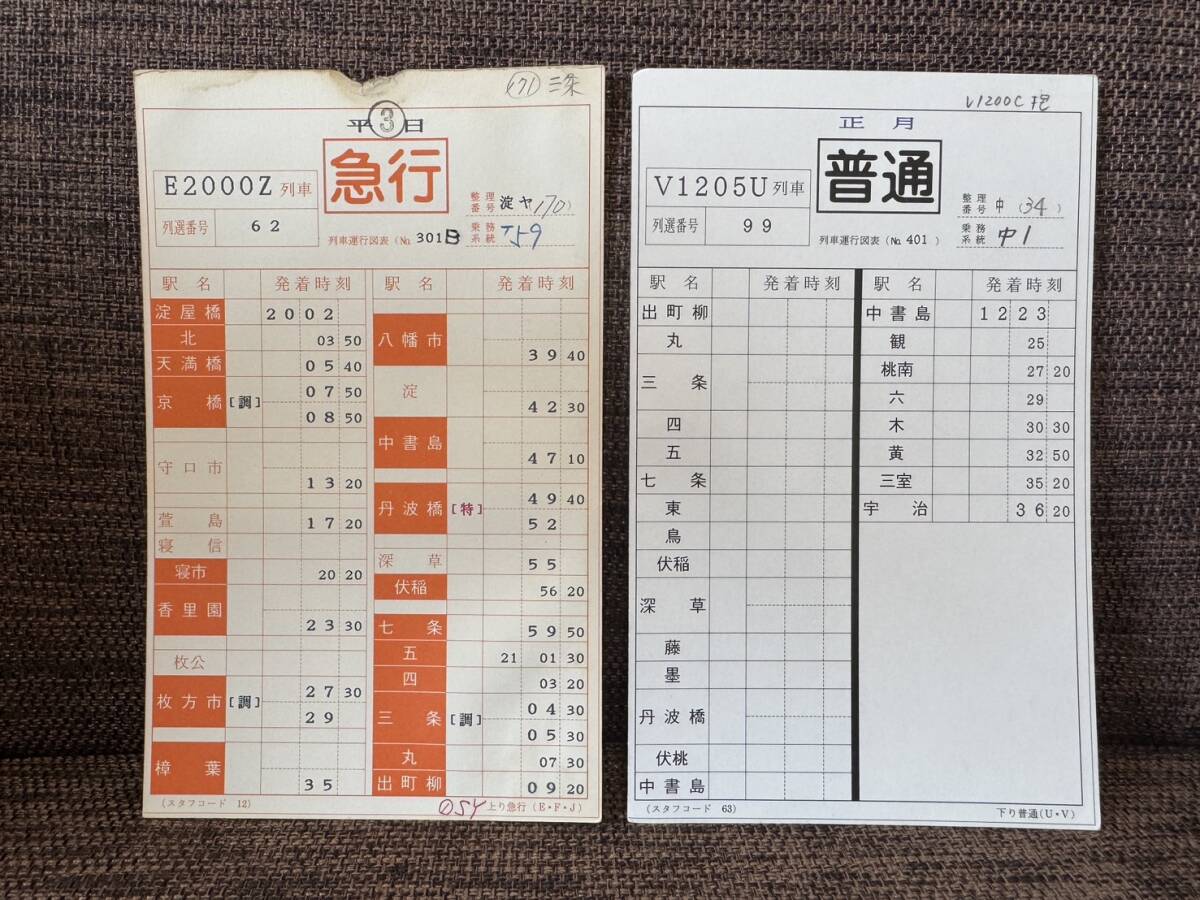 (71) 三条
平③日
急行
E2000Z 列車
列選番号 62
整理番号 淀ヤ170)
列車運行図表(№ 301B)
乗務系統
駅名 発着時刻
淀屋橋 2002
北 03 50
天満橋 05 40
京橋 [調] 07 50
08 50
守口市 13 20
萱島 17 20
寝信
寝市 20 20
香里園 23 30
枚公
枚方市 [調] 27 30
29
樟葉 35
(スタフコード 12)
駅名 発着時刻
八幡市 39 40
淀 42 30
中書島 47 10
丹波橋 [特] 49 40
52
深草 55
伏稲 56 20
七条 59 50
五 21 01 30
四 03 20
三条 [調] 04 30
05 30
丸 07 30
出町柳 09 20
OSY 上り急行(E・F・J)
V1200C
正月
普通
V1205U 列車
列選番号 99
整理番号 中 (34)
列車運行図表(№ 401)
乗務系統 中1
駅名 発着時刻
出町柳
丸
三条
四
五
七条
東
鳥
伏稲
深草
藤
墨
丹波橋
伏桃
中書島
(スタフコード 63)
駅名 発着時刻
中書島 1223
観 25
桃南 27 20
六 29
木 30 30
黄 32 50
三室 35 20
宇治 36 20
下り普通(U・V)